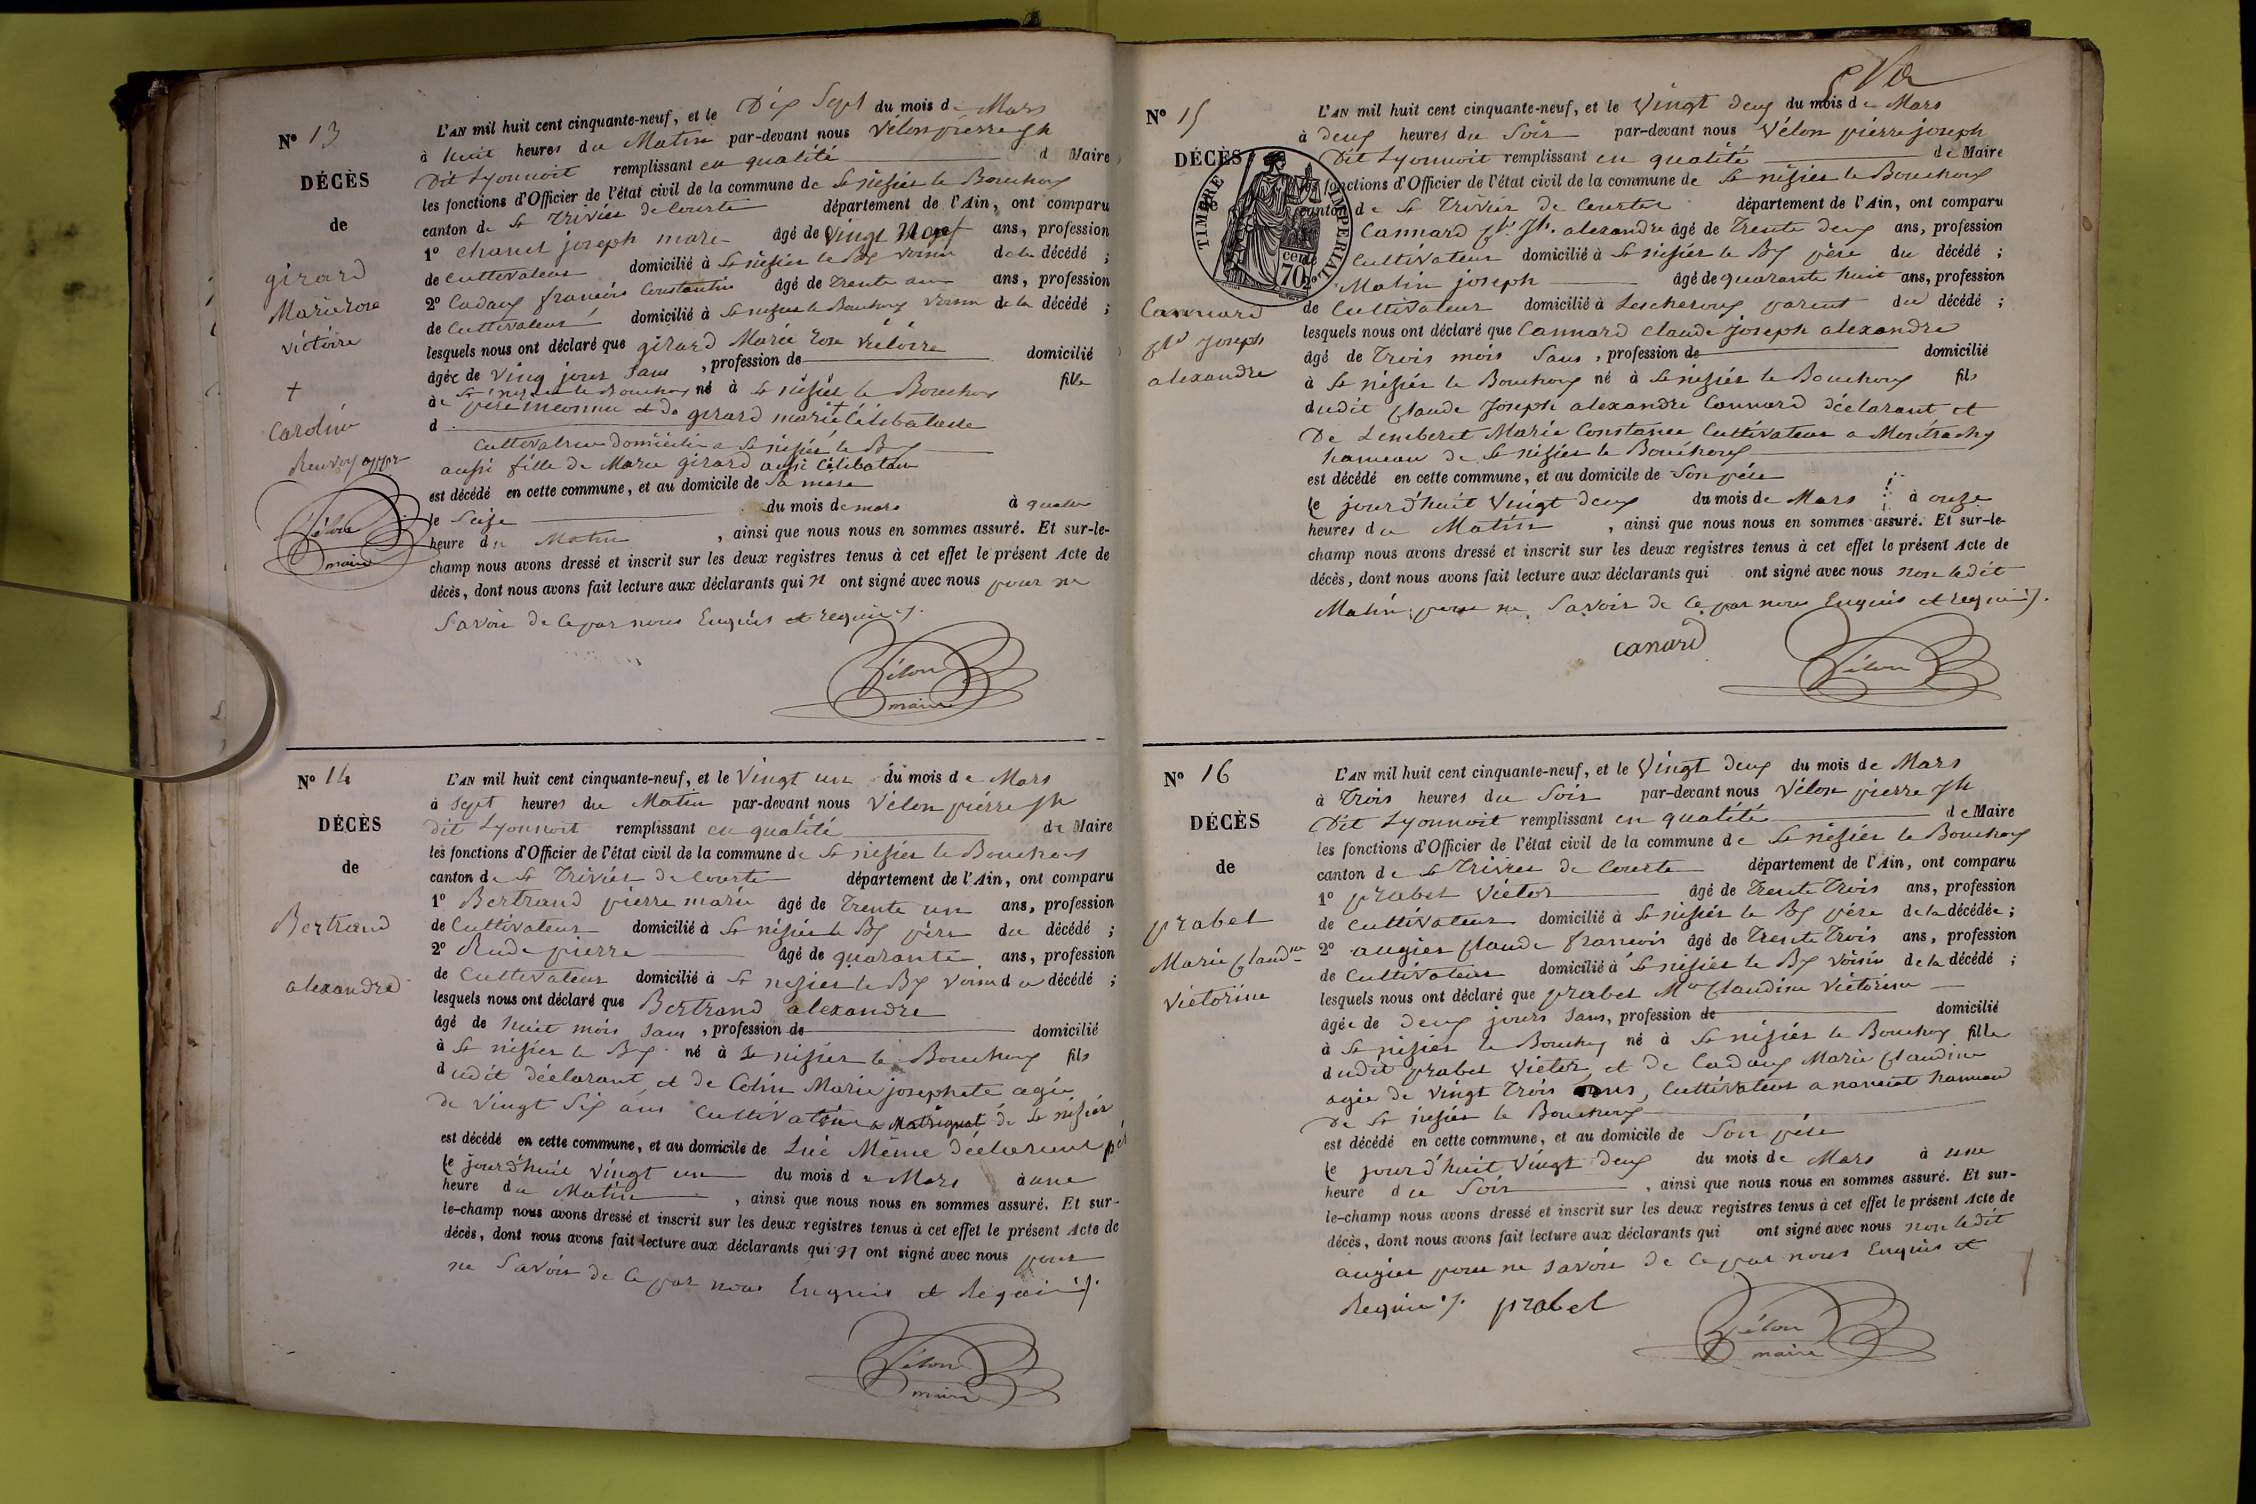 N° 13
DÉCÈS
de
girard
Marie rose
victoire
+
Caroline
Renvoy appr
Vélon
maire
L'AN mil huit cent cinquante-neuf, et le Dix Sept du mois de Mars
à huit heures du Matin par-devant nous Vélon pierre Jh
Dit Lyonnoit remplissant en qualité d Maire
les fonctions d'Officier de l'état civil de la commune de St nisier le Bouchoux
canton de St Trivier de Courte département de l'Ain, ont comparu
1° Chanel joseph marie âgé de vingt Neuf ans, profession
de Cultivateur domicilié à St nisier le Bx voisin de la décédé ;
2° Cadoux françois Constantin âgé de Trente ans, profession
de Cultivateur domicilié à St nisier le Bouchoux voisin de la décédé ;
lesquels nous ont déclaré que girard Marie rose victoire
âgée de Vingt jours Sans , profession de domicilié
à St nisier le Bouchoux né à St nisier le Bouchoux fille
de père inconnu et de girard marie + Célibataire
d
Cultivatrice domiciliée a St nisier le Bx
aussi fille de Marie girard aussi Célibataire
est décédé en cette commune, et au domicile de Sa mere
le Seize du mois de mars à quatre
heure du Matin , ainsi que nous nous en sommes assuré. Et sur-le-
champ nous avons dressé et inscrit sur les deux registres tenus à cet effet le présent Acte de
décès, dont nous avons fait lecture aux déclarants qui n ont signé avec nous pour ne
Savoir de Ce par nous Enquis et requis ./.
Vélon
maire
N° 14
DÉCÈS
de
Bertrand
alexandre
L'AN mil huit cent cinquante-neuf, et le Vingt un du mois de Mars
à Sept heures du Matin par-devant nous Vélon pierre Jh
dit Lyonnoit remplissant en qualité de Maire
les fonctions d'Officier de l'état civil de la commune de St nisier le Bouchoux
canton de St Trivier de Courte département de l'Ain, ont comparu
1° Bertrand pierre marie âgé de Trente un ans, profession
de Cultivateur domicilié à St nisier le Bx père du décédé ;
2° Rude pierre âgé de quarante ans, profession
de Cultivateur domicilié à St nisier le Bx Voisin du décédé ;
lesquels nous ont déclaré que Bertrand alexandre
âgé de huit mois Sans , profession de domicilié
à St nisier le Bx né à St nisier le Bouchoux fils
dudit déclarant, et de Colin Marie josephete agée
de vingt Six ans Cultivatrice a de St nisier
est décédé en cette commune, et au domicile de Lui Même déclarant
le jourd'huit vingt un du mois de Mars à une
heure du Matin , ainsi que nous nous en sommes assuré. Et sur-
le-champ nous avons dressé et inscrit sur les deux registres tenus à cet effet le présent Acte de
décès, dont nous avons fait lecture aux déclarants qui n ont signé avec nous pour
ne Savoir de Ce par nous Enquis et Requis ./.
Vélon
maire
N° 15
DÉCÈS
TIMBRE IMPERIAL
70 cent
Cannard
Cld Joseph
alexandre
L'AN mil huit cent cinquante-neuf, et le Vingt deux du mois de Mars
à deux heures du Soir par-devant nous Vélon pierre joseph
Dit Lyonnoit remplissant en qualité de Maire
les fonctions d'Officier de l'état civil de la commune de St nisier le Bouchoux
canton de St Trivier de Courtes département de l'Ain, ont comparu
Cannard Cld. Jh. alexandre âgé de Trente deux ans, profession
Cultivateur domicilié à St nisier le Bx père du décédé ;
2° Matin joseph âgé de quarante huit ans, profession
de Cultivateur domicilié à Lescheroux parent du décédé ;
lesquels nous ont déclaré que Cannard Claude Joseph alexandre
âgé de Trois mois Sans , profession de domicilié
à St nisier le Bouchoux né à St nisier le Bouchoux fils
dudit Claude Joseph alexandre Cannard déclarant et
De Lemberet Marie Constance Cultivateur a
hameau de St nisier le Bouchoux
est décédé en cette commune, et au domicile de Son père
le jourd'huit Vingt deux du mois de Mars à onze
heures du Matin , ainsi que nous nous en sommes assuré. Et sur-le-
champ nous avons dressé et inscrit sur les deux registres tenus à cet effet le présent Acte de
décès, dont nous avons fait lecture aux déclarants qui ont signé avec nous non ledit
Matin pour ne Savoir de Ce par nous Enquis et requis ./.
canard
Vélon
N° 16
DÉCÈS
de
prabel
Marie Claudne
Victorine
L'AN mil huit cent cinquante-neuf, et le Vingt deux du mois de Mars
à Trois heures du Soir par-devant nous Vélon pierre Jh
Dit Lyonnoit remplissant en qualité de Maire
les fonctions d'Officier de l'état civil de la commune de St nisier le Bouchoux
canton de St Trivier de Courte département de l'Ain, ont comparu
1° prabel Victor âgé de Trente Trois ans, profession
de Cultivateur domicilié à St nisier le Bx père de la décédée ;
2° augier Claude françois âgé de Trente Trois ans, profession
de Cultivateur domicilié à St nisier le Bx voisin de la décédé ;
lesquels nous ont déclaré que prabel Mie Claudine Victorine
âgée de deux jours Sans, profession de domicilié
à St nisier le Bouchoux né à St nisier le Bouchoux fille
dudit prabel Victor, et de Cadoux Marie Claudine
agée de Vingt Trois ans, Cultivateur a hameau
De St nisier le Bouchoux
est décédé en cette commune, et au domicile de Son père
le jourd'huit Vingt deux du mois de Mars à une
heure du Soir , ainsi que nous nous en sommes assuré. Et sur-
le-champ nous avons dressé et inscrit sur les deux registres tenus à cet effet le présent Acte de
décès, dont nous avons fait lecture aux déclarants qui ont signé avec nous non ledit
augier pour ne Savoir de Ce par nous Enquis et
Requis ./. prabel
Vélon
maire